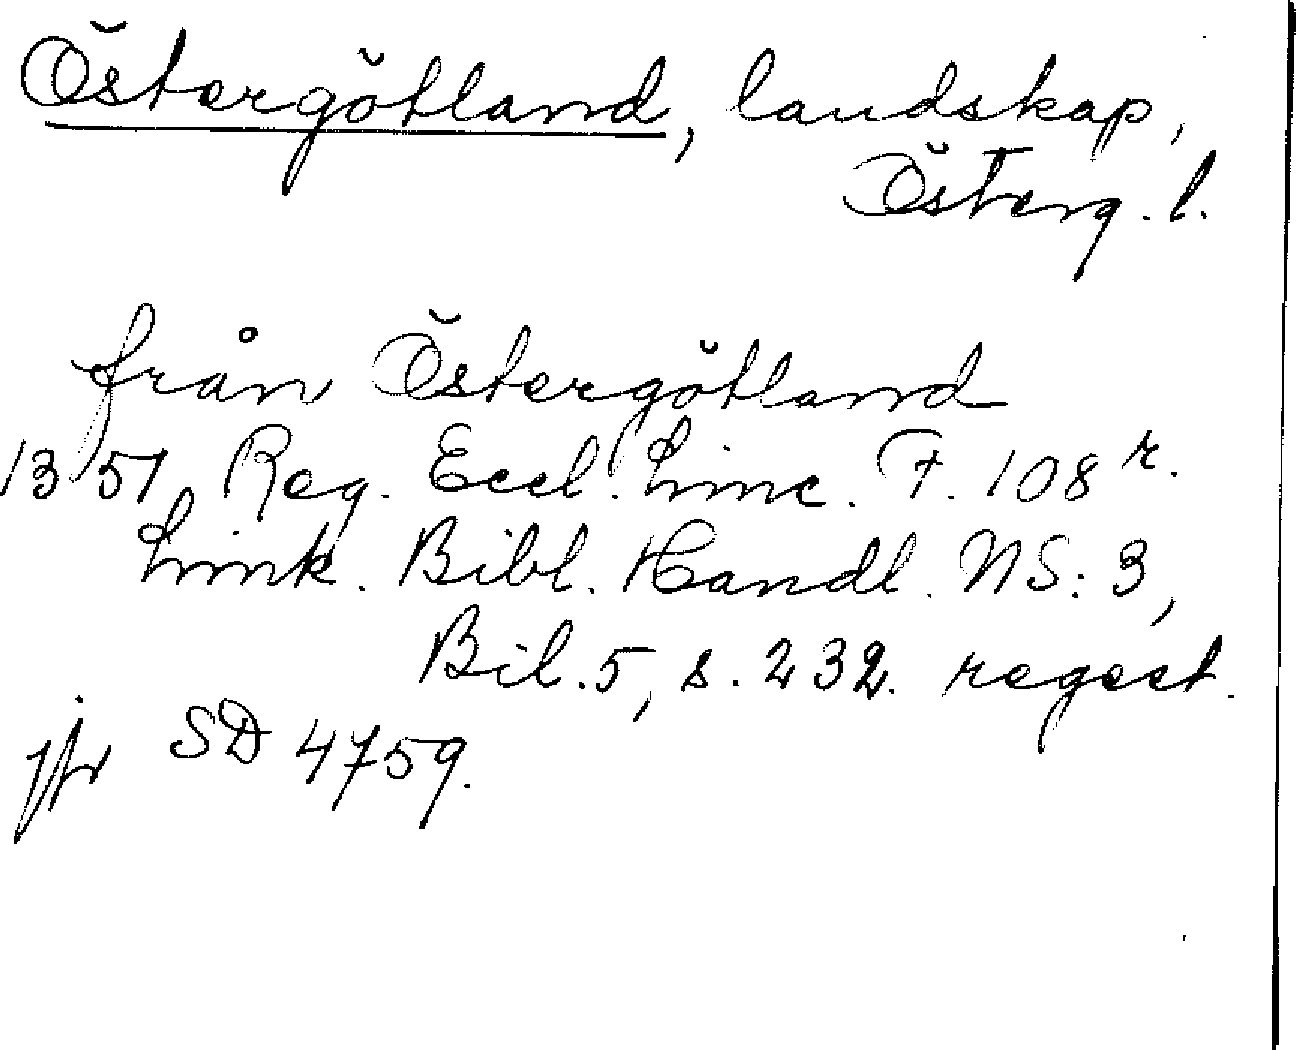 Östergötland, landskap,
Österg. l.
från Östergötland
1351 Reg. Eccl. Linc. F. 108 r.
Link. Bibl. Handl. NS: 3,
Bil. 5, s. 232. regest.
jfr SD 4759.